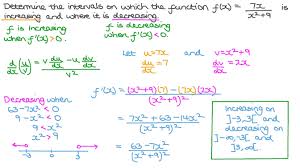 Determine the intervals on which the function f(x) = 7x/(x²+9) is
increasing and where it is decreasing.
f is increasing when f'(x) > 0.
f is decreasing when f'(x) < 0
d/dx (u/v) = (v du/dx - u dv/dx)/v²
let u = 7x and v = x²+9
du/dx = 7 dv/dx = 2x
f'(x) = ((x²+9)(7) - (7x)(2x))/(x²+9)²
= (7x²+63-14x²)/(x²+9)²
= (63-7x²)/(x²+9)²
Decreasing when
63-7x² < 0
9-x² < 0
9 < x²
x² > 9
-3 3
increasing on
]-3,3[ and
decreasing on
]-∞,-3[ and
]3,∞[.